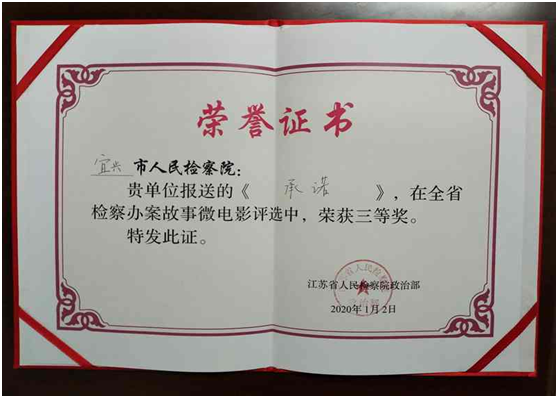 荣誉证书
宜兴市人民检察院：
贵单位报送的《承诺》，在全省
检察办案故事微电影评选中，荣获三等奖。
特发此证。
江苏省人民检察院政治部
2020年1月2日